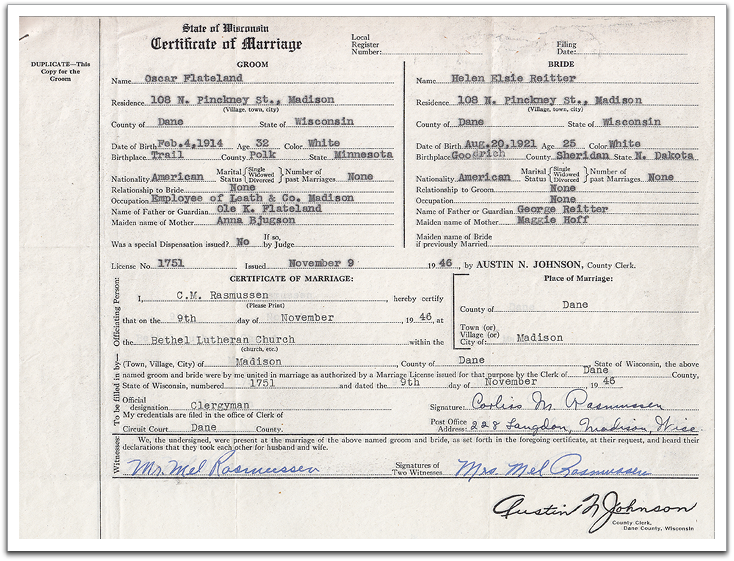 State of Wisconsin
Certificate of Marriage
Local
Register
Number:
Filing
Date:
DUPLICATE—This
Copy for the
Groom
GROOM
Name Oscar Flateland
Residence 108 N. Pinckney St., Madison
(Village, town, city)
County of Dane State of Wisconsin
Date of Birth Feb.4,1914 Age 32 Color White
Birthplace Trail County Polk State Minnesota
Nationality American Marital Status { Single Widowed Divorced } Number of past Marriages None
Relationship to Bride None
Occupation Employee of Leath & Co. Madison
Name of Father or Guardian Ole K. Flateland
Maiden name of Mother Anna Bjugson
Was a special Dispensation issued? No If so, by Judge
BRIDE
Name Helen Elsie Reitter
Residence 108 N. Pinckney St., Madison
(Village, town, city)
County of Dane State of Wisconsin
Date of Birth Aug.20,1921 Age 25 Color White
Birthplace Goodrich County Sheridan State N. Dakota
Nationality American Marital Status { Single Widowed Divorced } Number of past Marriages None
Relationship to Groom None
Occupation None
Name of Father or Guardian George Reitter
Maiden name of Mother Maggie Hoff
Maiden name of Bride
if previously Married
License No. 1751 Issued November 9 1946, by AUSTIN N. JOHNSON, County Clerk.
To be filled in by—Officiating Person:
CERTIFICATE OF MARRIAGE:
I, C.M. Rasmussen hereby certify
(Please Print)
that on the 9th day of November, 1946, at
the Bethel Lutheran Church within the
(church, etc.)
Place of Marriage:
County of Dane
Town (or)
Village (or)
City of: Madison
(Town, Village, City) of Madison, County of Dane State of Wisconsin, the above
named groom and bride were by me united in marriage as authorized by a Marriage License issued for that purpose by the Clerk of Dane County,
State of Wisconsin, numbered 1751 and dated the 9th day of November 1946
Official
designation Clergyman
My credentials are filed in the office of Clerk of
Circuit Court Dane County.
Signature: Corliss M. Rasmussen
Post Office
Address: 228 Langdon, Madison, Wisc.
Witnesses:
We, the undersigned, were present at the marriage of the above named groom and bride, as set forth in the foregoing certificate, at their request, and heard their
declarations that they took each other for husband and wife.
Mr. Mel Rasmussen Signatures of Two Witnesses Mrs. Mel Rasmussen
Austin N Johnson
County Clerk,
Dane County, Wisconsin